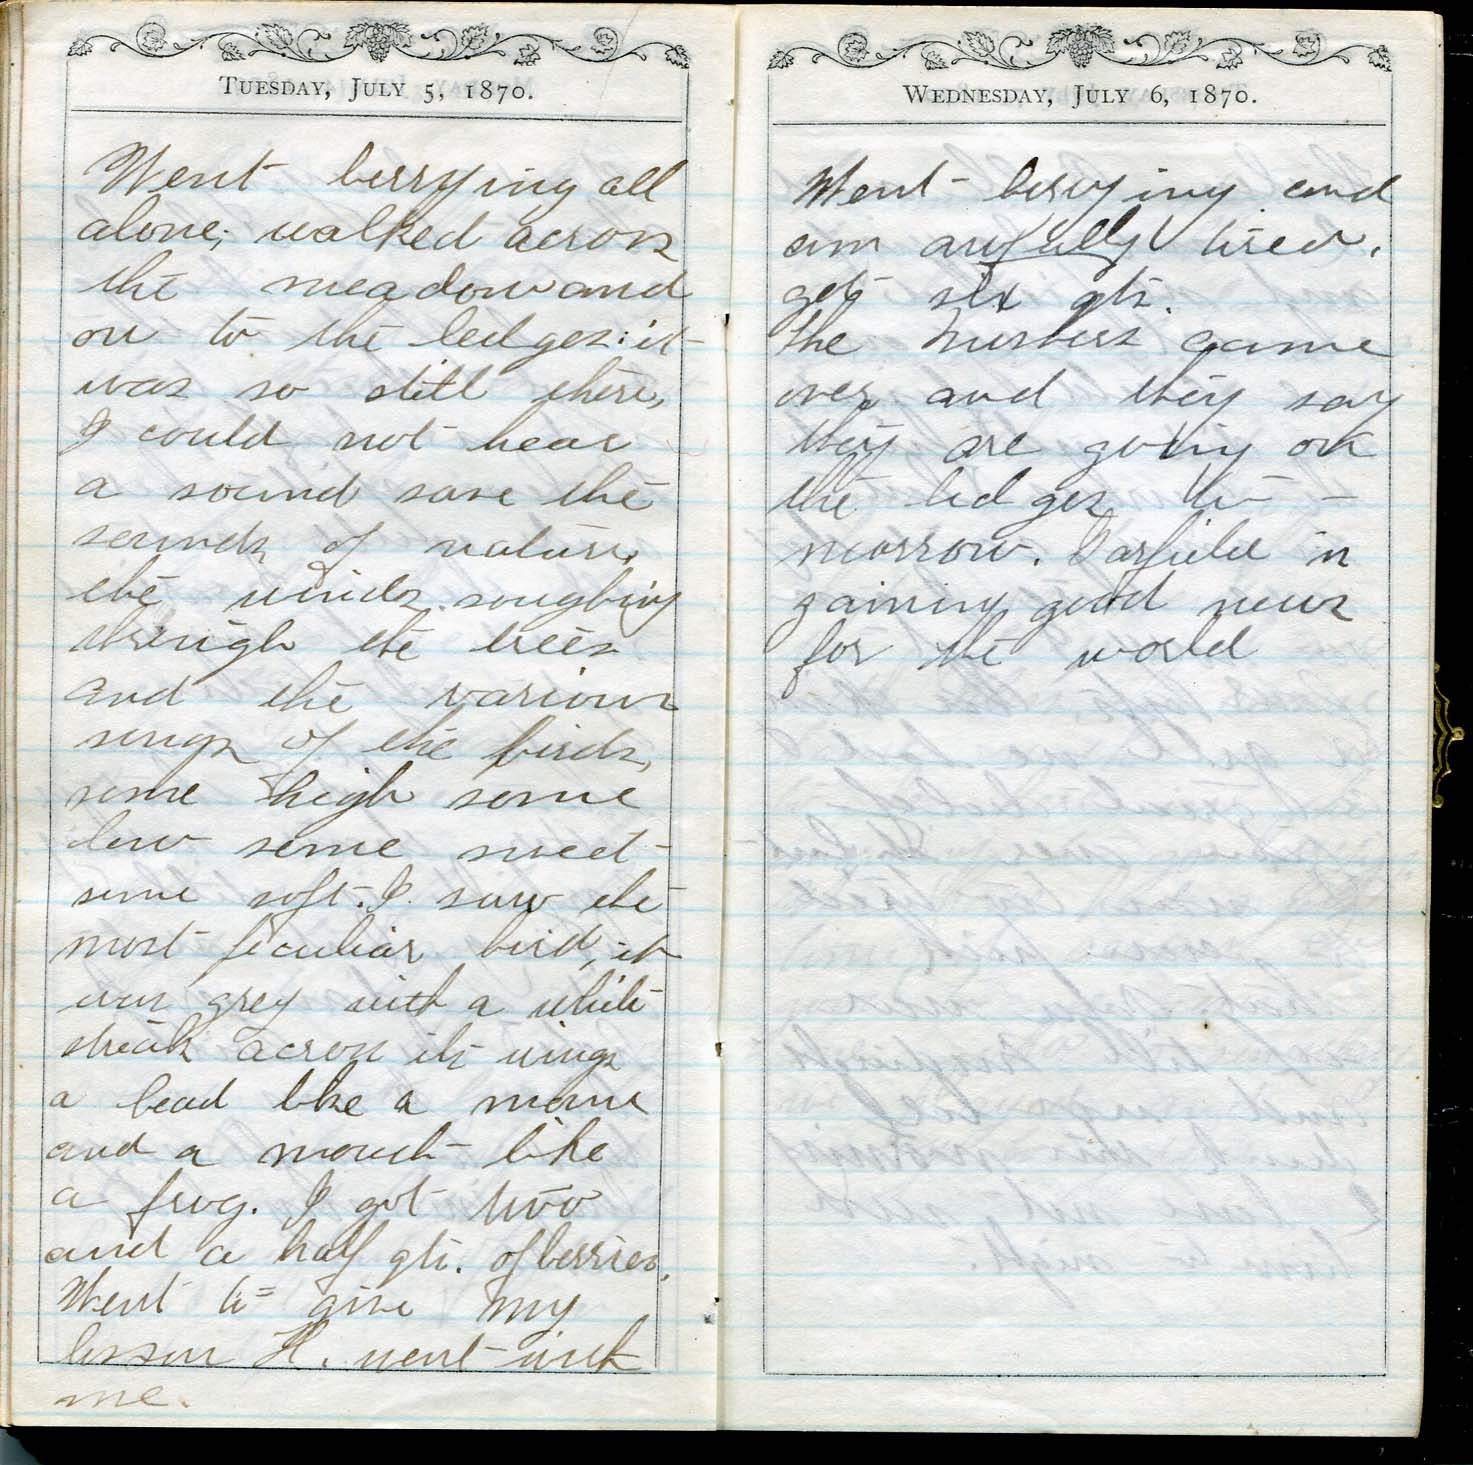 TUESDAY, JULY 5, 1870.
Went berrying all
alone; walked across
the meadow and
on to the ledges: it
was so still there,
I could not hear
a sound save the
sounds of nature,
the winds soughing
through the trees
and the various
songs of the birds,
some high some
low some sweet
some soft. I saw the
most peculiar bird, it
was grey with a white
streak across its wings
a head like a
and a mouth like
a frog. I got two
and a half qts. of berries.
Went to give my
lesson H. went with
me.
WEDNESDAY, JULY 6, 1870.
Went berrying and
am awfully tired.
got six qts.
The came
over and they say
they are going on
the ledges to-
morrow. Garfield is
gaining good news
for the world